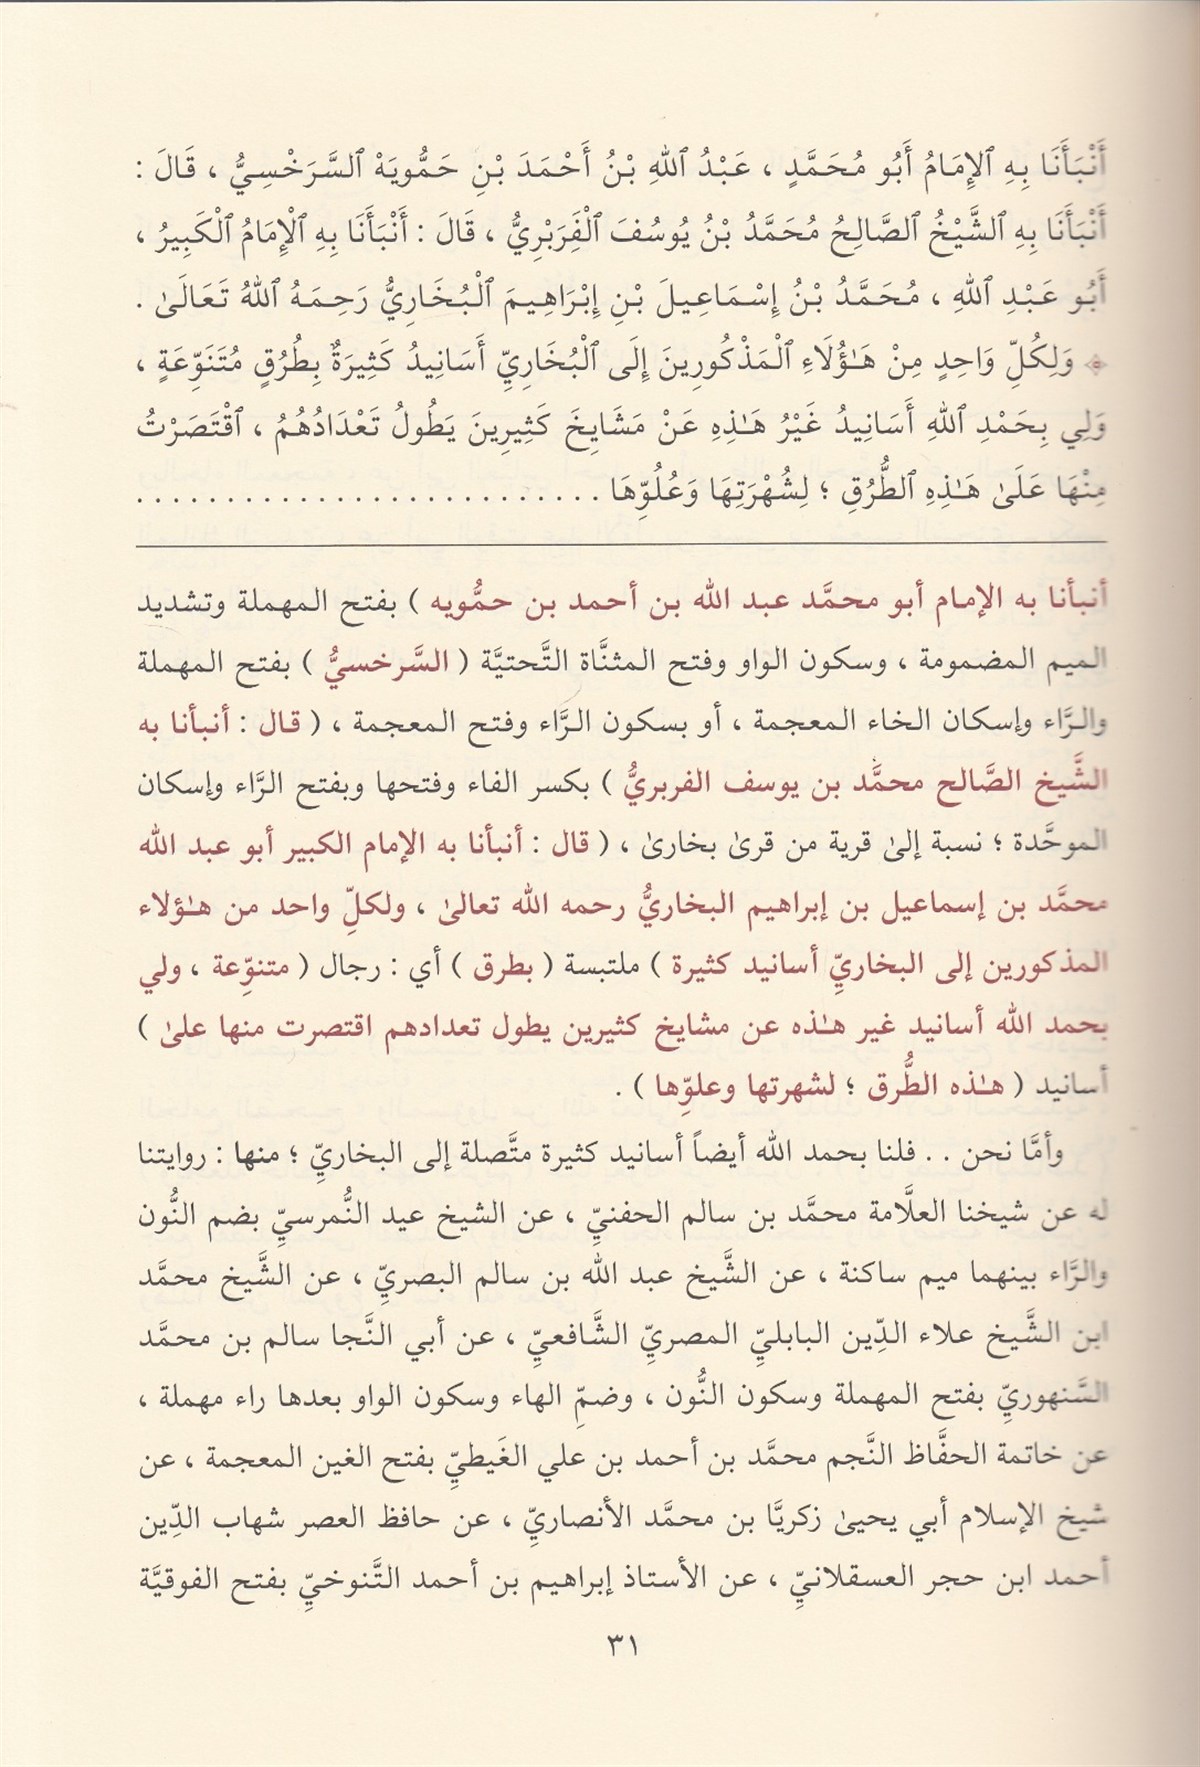 أَنْبَأَنَا بِهِ ٱلإِمَامُ أَبُو مُحَمَّدٍ ، عَبْدُ ٱللهِ بْنُ أَحْمَدَ بْنِ حَمُّويَهْ ٱلسَّرَخْسِيُّ ، قَالَ :
أَنْبَأَنَا بِهِ ٱلشَّيْخُ ٱلصَّالِحُ مُحَمَّدُ بْنُ يُوسُفَ ٱلْفَِرَبْرِيُّ ، قَالَ : أَنْبَأَنَا بِهِ ٱلْإِمَامُ ٱلْكَبِيرُ ،
أَبُو عَبْدِ ٱللهِ ، مُحَمَّدُ بْنُ إِسْمَاعِيلَ بْنِ إِبْرَاهِيمَ ٱلْبُخَارِيُّ رَحِمَهُ ٱللهُ تَعَالَىٰ .
وَلِكُلِّ وَاحِدٍ مِنْ هَـٰؤُلَاءِ ٱلْمَذْكُورِينَ إِلَى ٱلْبُخَارِيِّ أَسَانِيدُ كَثِيرَةٌ بِطُرُقٍ مُتَنَوِّعَةٍ ،
وَلِي بِحَمْدِ ٱللهِ أَسَانِيدُ غَيْرُ هَـٰذِهِ عَنْ مَشَايِخَ كَثِيرِينَ يَطُولُ تَعْدَادُهُمُ ، ٱقْتَصَرْتُ
مِنْهَا عَلَىٰ هَـٰذِهِ ٱلطُّرُقِ ؛ لِشُهْرَتِهَا وَعُلُوِّهَا . . . . . . . . . . . . . . . . . . . . . . . . . .
أنبأنا به الإمام أبو محمَّد عبد الله بن أحمد بن حمُّويه ) بفتح المهملة وتشديد
الميم المضمومة ، وسكون الواو وفتح المثنَّاة التَّحتيَّة ( السَّرخسيُّ ) بفتح المهملة
والرَّاء وإسكان الخاء المعجمة ، أو بسكون الرَّاء وفتح المعجمة ، ( قال : أنبأنا به
الشَّيخ الصَّالح محمَّد بن يوسف الفربريُّ ) بكسر الفاء وفتحها وبفتح الرَّاء وإسكان
الموحَّدة ؛ نسبة إلىٰ قرية من قرىٰ بخارىٰ ، ( قال : أنبأنا به الإمام الكبير أبو عبد الله
محمَّد بن إسماعيل بن إبراهيم البخاريُّ رحمه الله تعالىٰ ، ولكلِّ واحد من هـٰؤلاء
المذكورين إلى البخاريِّ أسانيد كثيرة ) ملتبسة ( بطرق ) أي : رجال ( متنوِّعة ، ولي
بحمد الله أسانيد غير هـٰذه عن مشايخ كثيرين يطول تعدادهم اقتصرت منها علىٰ )
أسانيد ( هـٰذه الطُّرق ؛ لشهرتها وعلوِّها ) .
وأمَّا نحن . . فلنا بحمد الله أيضاً أسانيد كثيرة متَّصلة إلى البخاريِّ ؛ منها : روايتنا
له عن شيخنا العلَّامة محمَّد بن سالم الحفنيِّ ، عن الشيخ عيد النُّمرسيِّ بضم النُّون
والرَّاء بينهما ميم ساكنة ، عن الشَّيخ عبد الله بن سالم البصريِّ ، عن الشَّيخ محمَّد
ابن الشَّيخ علاء الدِّين البابليِّ المصريِّ الشَّافعيِّ ، عن أبي النَّجا سالم بن محمَّد
السَّنهوريِّ بفتح المهملة وسكون النُّون ، وضمِّ الهاء وسكون الواو بعدها راء مهملة ،
عن خاتمة الحفَّاظ النَّجم محمَّد بن أحمد بن علي الغَيطيِّ بفتح الغين المعجمة ، عن
شيخ الإسلام أبي يحيىٰ زكريَّا بن محمَّد الأنصاريِّ ، عن حافظ العصر شهاب الدِّين
أحمد ابن حجر العسقلانيِّ ، عن الأستاذ إبراهيم بن أحمد التَّنوخيِّ بفتح الفوقيَّة
٣١